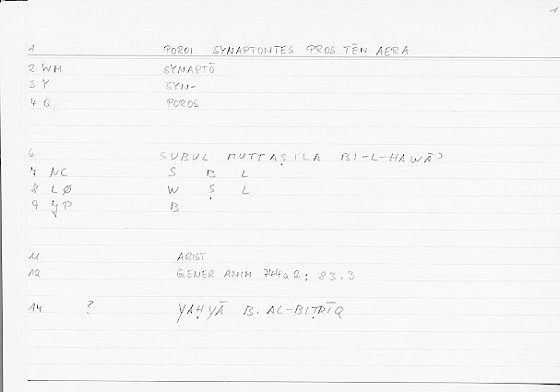 1
1 POROI SYNAPTONTES PROS TĒN AERA
2 WM SYNAPTŌ
3 Y SYN-
4 Q POROS
6 SUBUL MUTTAṢILA BI-L-HAWĀʾ
7 NC S B L
8 LØ W Ṣ L
9 YP B
11 ARIST
12 GENER ANIM 744a2; 83.3
14 ? YAḤYĀ B. AL-BIṬRĪQ